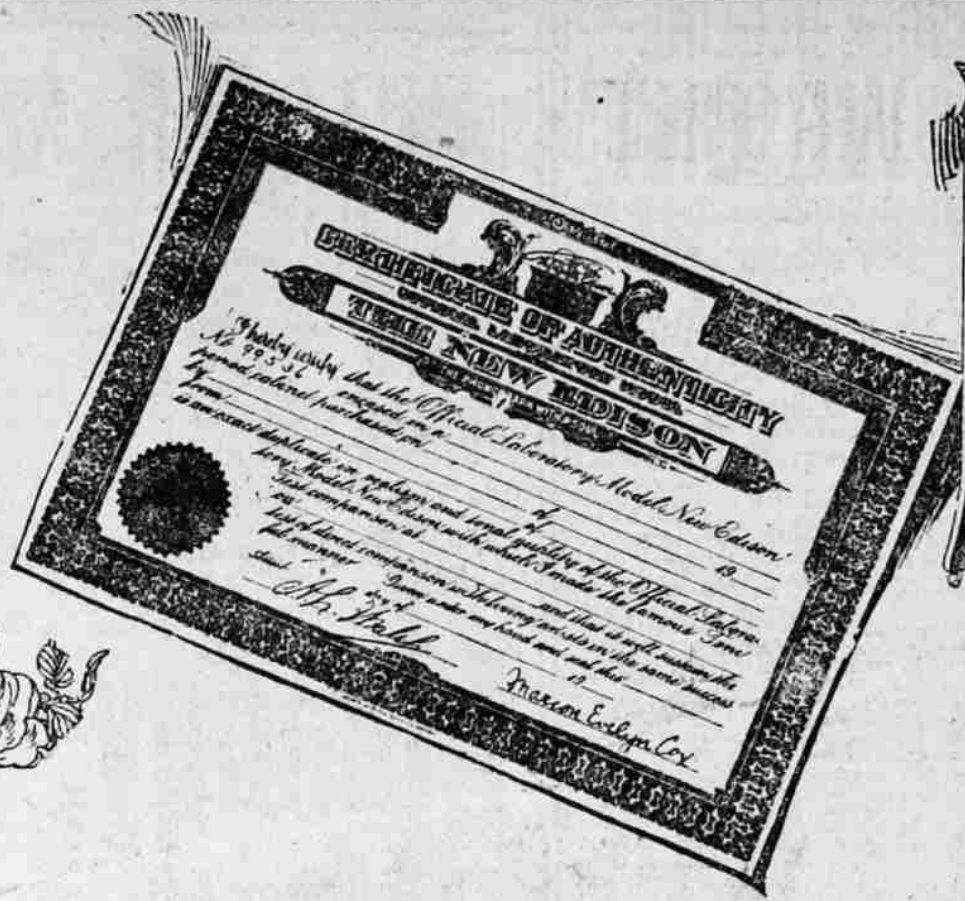 CERTIFICATE OF AUTHENTICITY
OFFICIAL LABORATORY MODEL
THE NEW EDISON
that the Official Laboratory Model New Edison
No 995 encased in a
period cabinet purchased on 19
by of
from of
is an exact duplicate in and tonal quality of the Official Labora-
tory Model New Edison with which I made the famous Tone
Test comparison at and that it will sustain the
test of direct comparison with living artists in the same success
ful manner Given under my hand and seal this
day of 19
Marion Evelyn Cox